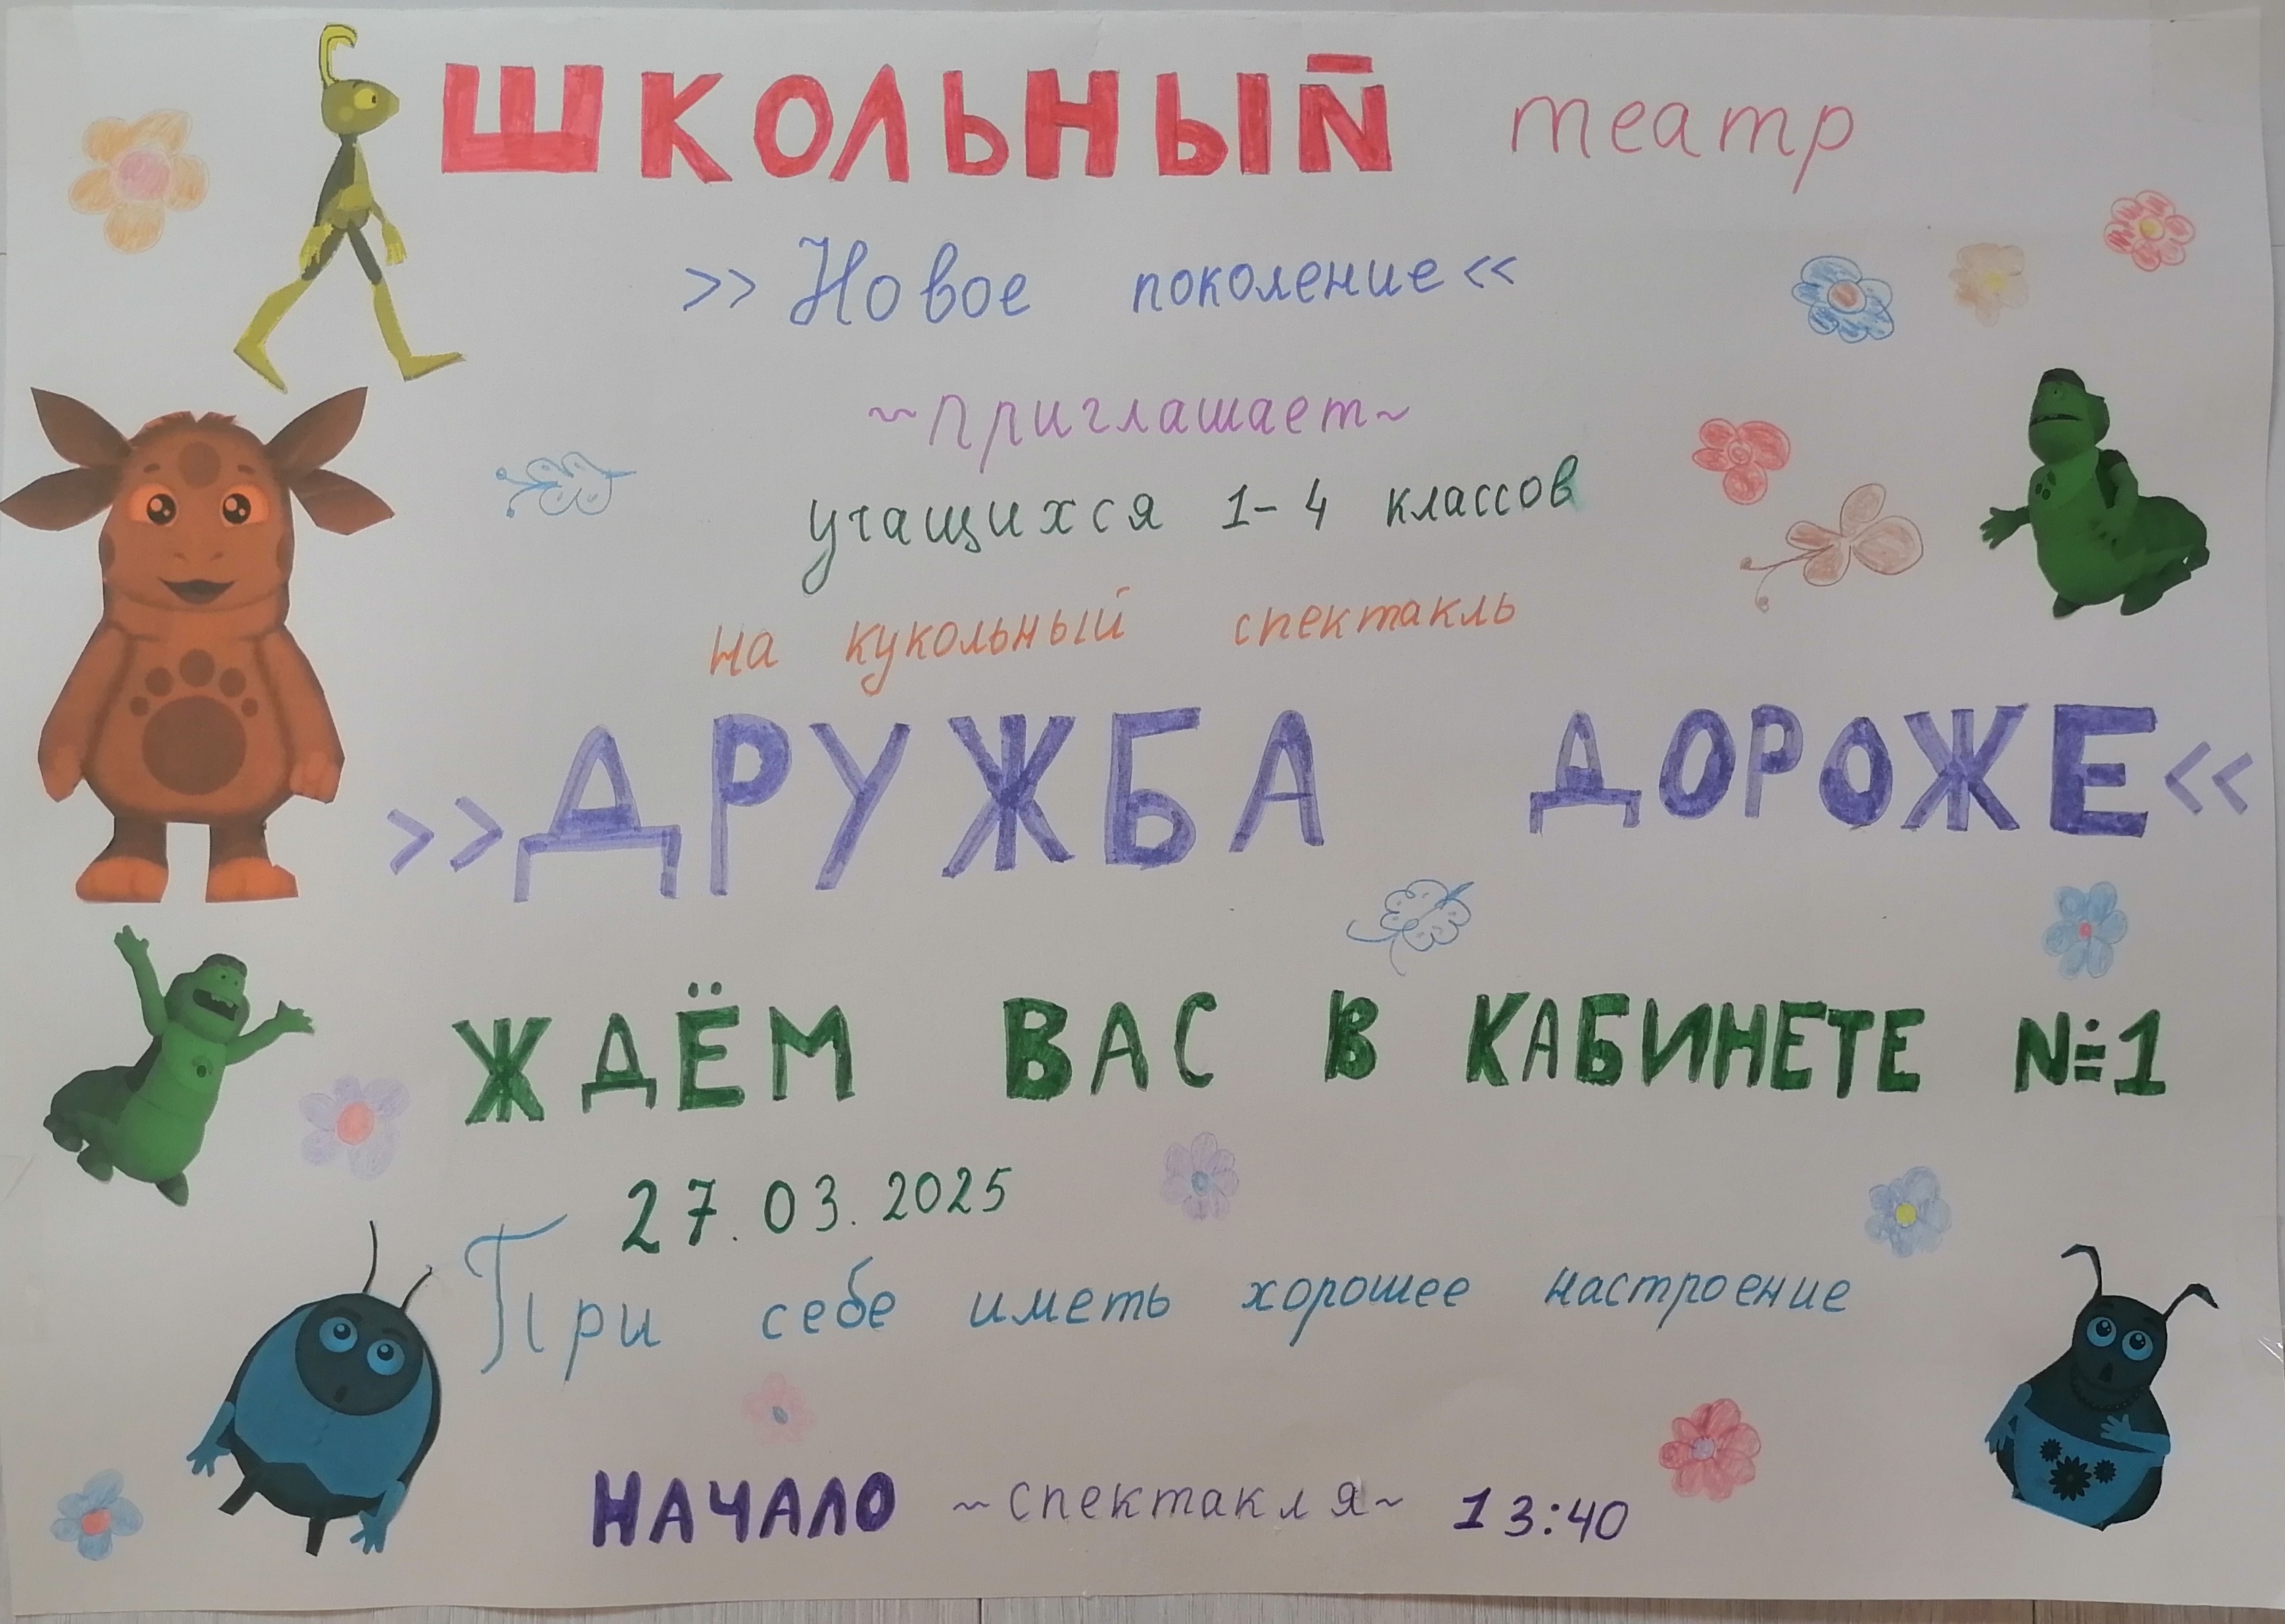 ШКОЛЬНЫЙ театр
>> Новое поколение <<
~ приглашает ~
учащихся 1-4 классов
на кукольный спектакль
>> ДРУЖБА ДОРОЖЕ <<
ЖДЁМ ВАС В КАБИНЕТЕ №1
27.03.2025
При себе иметь хорошее настроение
НАЧАЛО ~ спектакля ~ 13:40